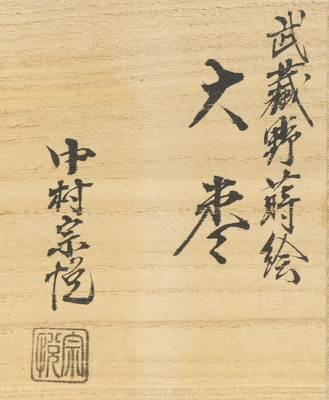 武蔵野蒔絵
大棗
中村宗悦
宗悦